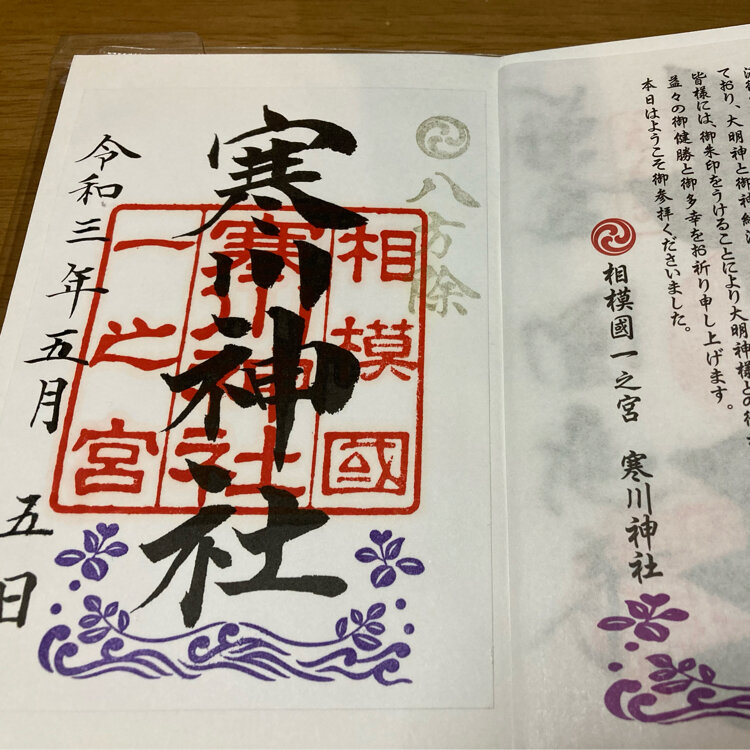 八方除
寒川神社
相模國
寒川神社
一之宮
令和三年五月
五日
ており、大明神と御神縁
皆様には、御朱印をうけることにより大明神様との
益々の御健勝と御多幸をお祈り申し上げます。
本日はようこそ御参拝くださいました。
相模國一之宮 寒川神社